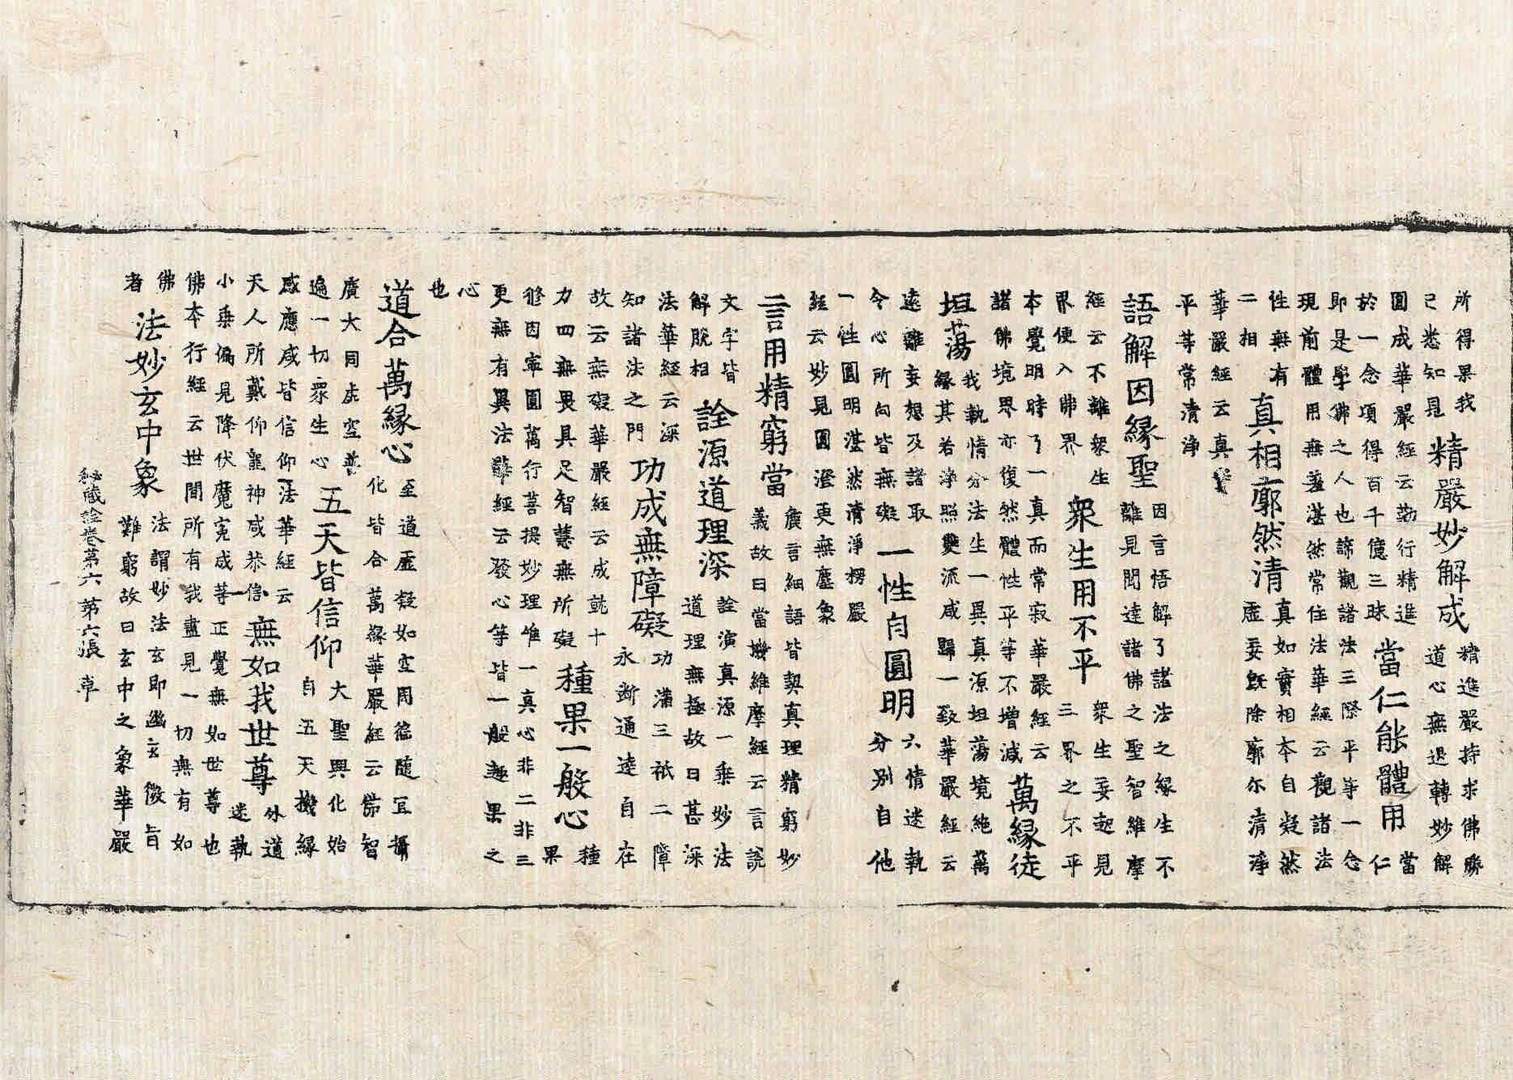 所得果我已悉知見精嚴妙解成精進嚴持求佛勝道心無退轉妙解
圓成華嚴經云勤行精進於一念項得百千億三昧當仁能體用當仁
即是學佛之人也諦觀諸法三際平等一念
現前體用無㝵湛然常住法華經云觀諸法
性無有二相真相廓然清真如實相本自凝然虛妄旣除廓尔清淨
華嚴經云真
平等常清淨
語解因緣聖因言悟解了諸法之緣生不離見聞達諸佛之聖智維摩
經云不離衆生界便入佛界衆生用不平衆生妄起見三界之不平
本覺明時了一真而常寂華嚴經云諸佛境界亦復然體性平等不增減萬緣徒
坦蕩我執情分法生一異真源坦蕩境絶萬緣其若淨照雙流咸歸一致華嚴經云
遠離妄想及諸取令心所向皆無礙一性自圓明六情迷執分別自他
一性圓明湛然清淨楞嚴
經云妙見圓澄更無塵象
言用精窮當麁言細語皆契真理精窮妙義故曰當機維摩經云言說
文字皆解脫相詮源道理深詮演真源一乘妙法道理無極故曰甚深
法華經云深知諸法之門功成無障礙功滿三祇二障永斷通達自在
故云無礙華嚴經云成就十力四無畏具足智慧無所礙種果一般心種果
修因寧圓萬行菩提妙理唯一真心非二非三
更無有異法華經云發心等皆一般趣果之
心
也
道合萬緣心至道虛凝如空周徧隨冝攝化皆合萬緣華嚴經云佛智
廣大同虛空普遍一切衆生心五天皆信仰大聖興化始自五天機緣
感應咸皆信仰法華經云天人所戴仰龍神咸恭信無如我世尊外道迷執
小乘偏見降伏魔寃成等正覺無如世尊也
佛本行經云世間所有我盡見一切無有如
佛者法妙玄中象法謂妙法玄即幽玄微旨難窮故曰玄中之象華嚴
秘藏詮卷第六 第六張 卓